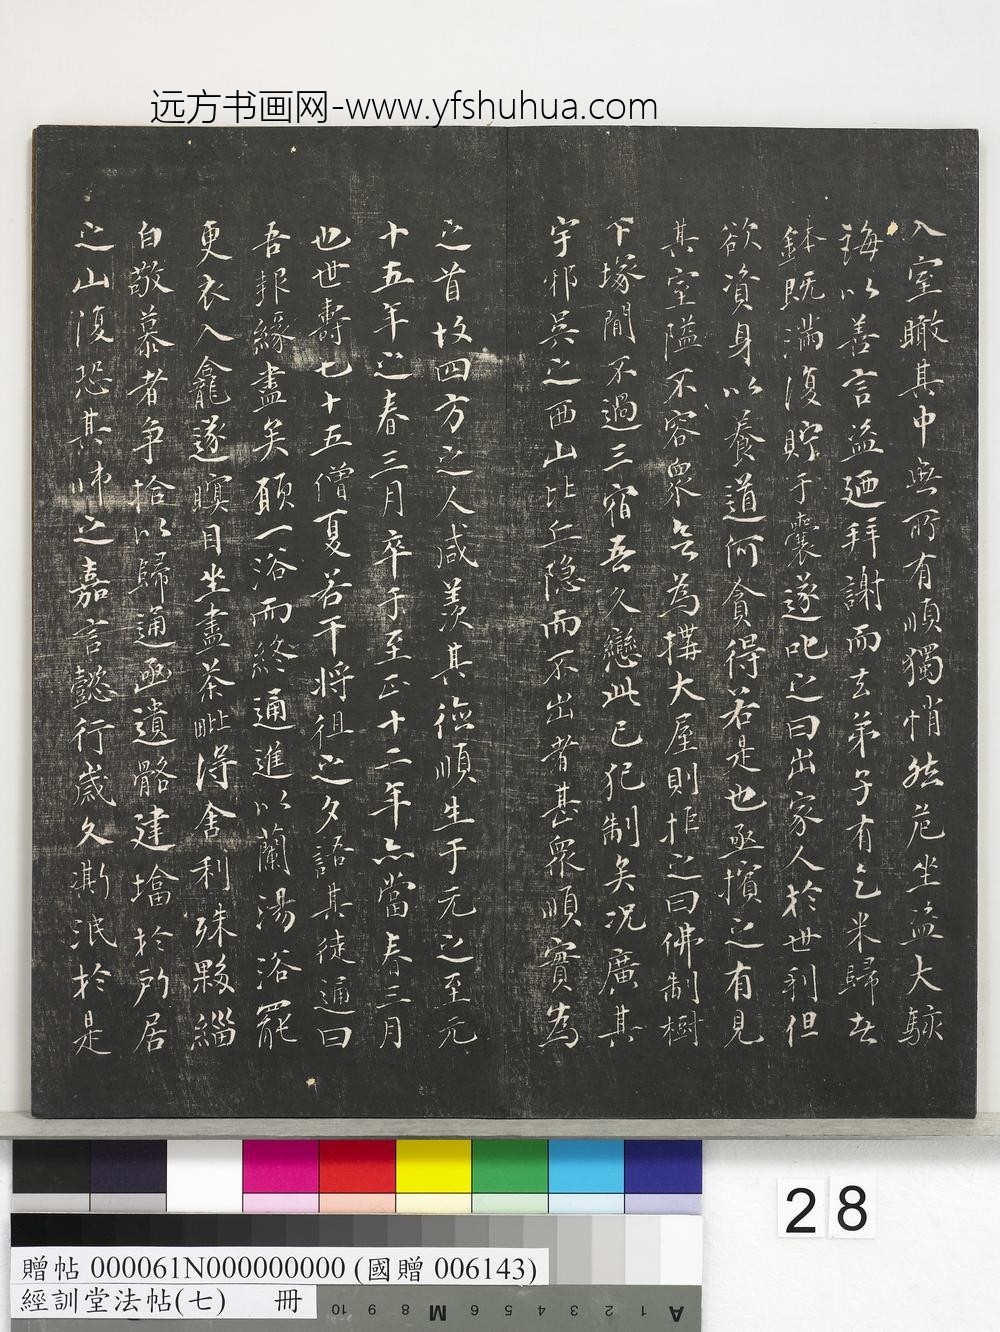 远方书画网-www.yfshuhua.com
入室瞰其中無所有順獨悄然危坐益大駭
誨以善言益廼拜謝而去弟子有乞米歸者
鉢既滿復貯于囊遂叱之曰出家人於世利但
欲資身以養道何貪得若是也亟擯之有見
其室隘不容衆欲為搆大屋則拒之曰佛制樹
下塚間不過三宿吾久戀此已犯制矣况廣其
宇邪吳之西山比丘隐而不出者甚衆順實為
之首故四方之人咸羨其德順生于元之至元
十五年之春三月卒于至正十二年亦當春三月
也世壽七十五僧夏若干将徂之夕語其徒通曰
吾報緣盡矣頋一浴而終通進以蘭湯浴罷
更衣入龕遂瞑目坐盡荼毗得舍利殊夥緇
白敬慕者争拾以歸通函遺骼建塔於所居
之山復恐其師之嘉言懿行歲久澌泯於是
28
贈帖 000061N000000000 (國贈 006143)
經訓堂法帖(七) 冊
10 9 8 M 6 5 4 3 2 1 A